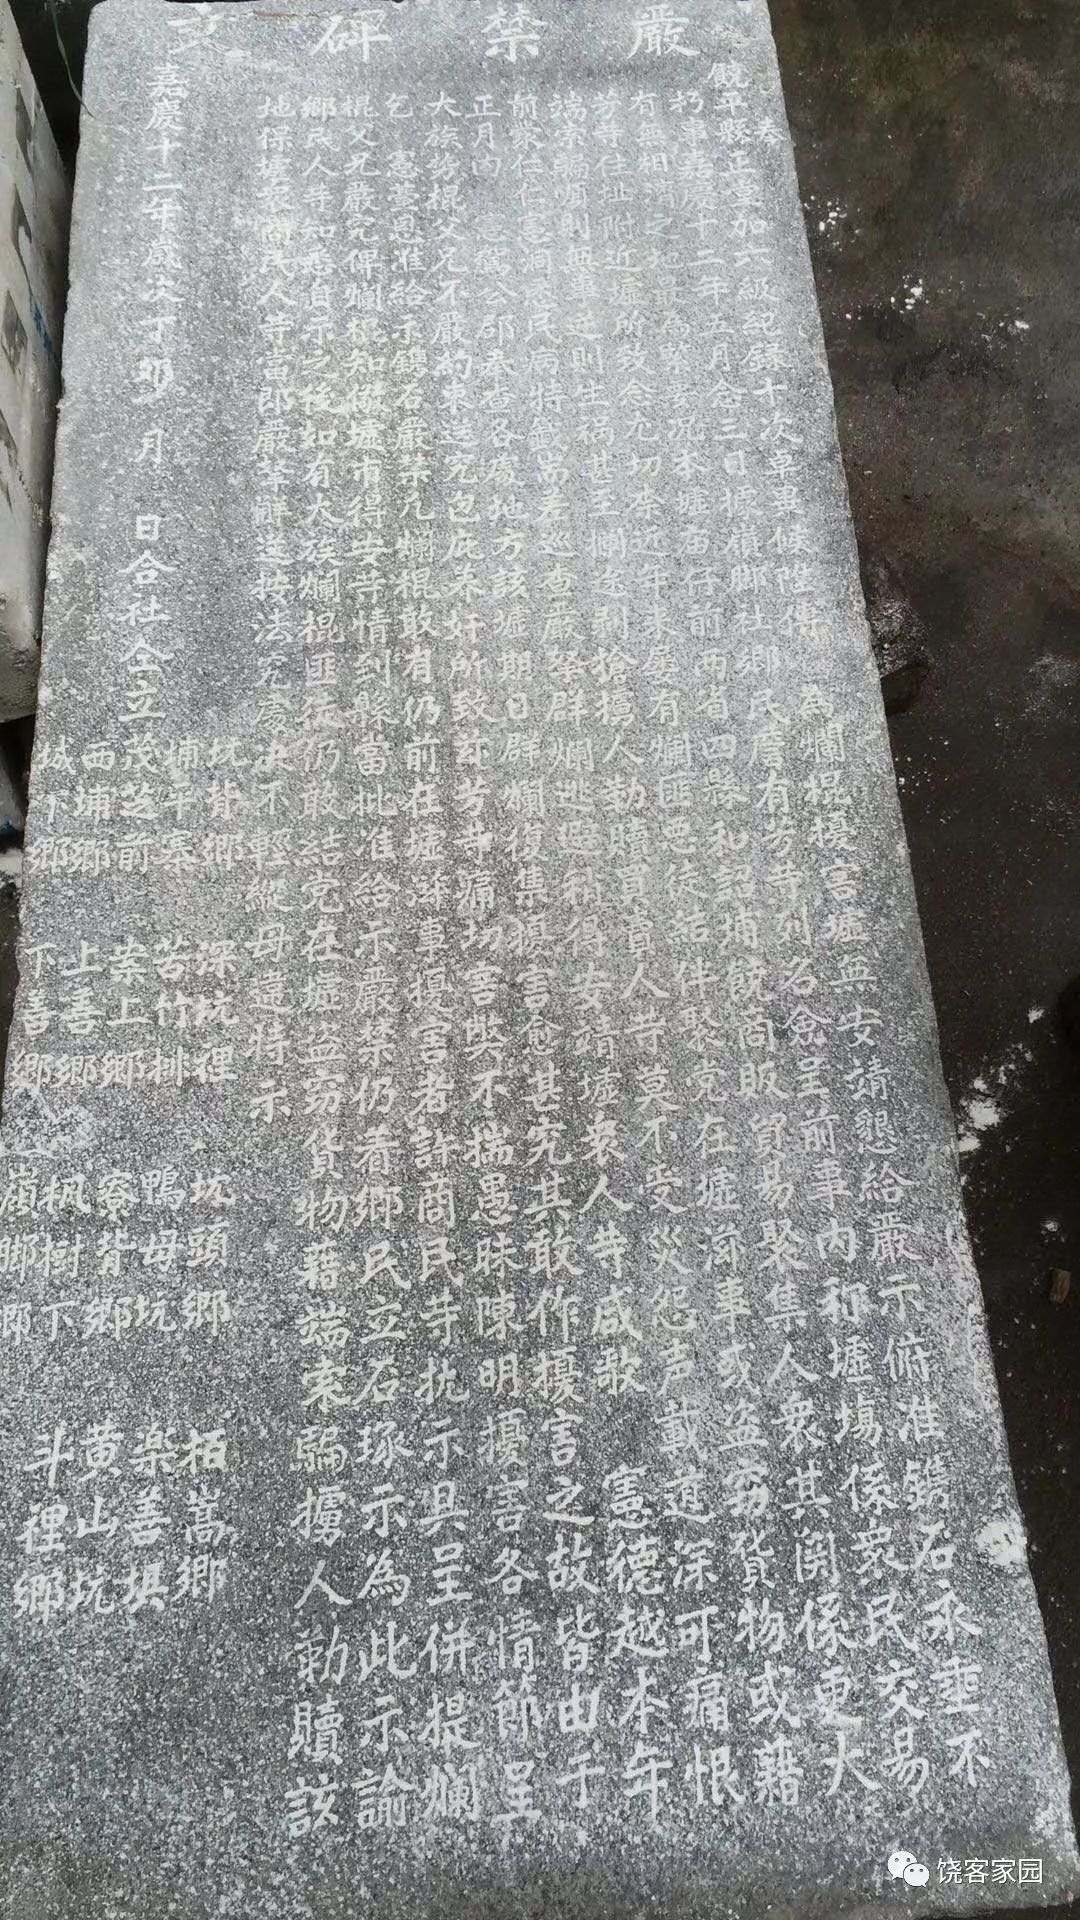 嚴禁碑文
饒平縣正堂加六級紀錄十次卓異候陞傅 為爛棍擾害墟無安靖懇給嚴示俯准鐫石永垂不
朽事嘉慶十二年五月念三日據嶺腳社鄉民詹有芳等列名僉呈前事內称墟塲係衆民交易
有無相濟之地最為緊要况本墟居仔前两省四縣和詔埔饒商販貿易聚集人衆其関係更大
芳等住址附近墟所致念尤切李近年来屡有爛匪惡徒結伴聚党在墟滋事或盜窃貨物或藉
端索騙順則無事逆則生禍甚至攔途剥搶擄人勒贖買賣人等莫不受災怨声載道深可痛恨
前蒙仁憲洞悉民病特籤出差巡查嚴拏群爛逃避稍得安靖墟衆人等咸歌 憲德越本年
正月内 憲駕公郡奉查各處地方該墟期日群爛復集擾害愈甚究其敢作擾害之故皆由于
大族势棍父兄不嚴約束逞兇包庇养奸所致芳等痛切害弊不揣愚昧陳明擾害各情節呈
乞 憲臺恩准給示鐫石嚴禁凡爛棍敢有仍前在墟滋事擾害者許商民等执示具呈併提爛
棍父兄嚴究俾爛棍知儆墟市得安等情到縣當批准給示嚴禁仍着鄉民立石琢示為此示諭
鄉民人等知悉自示之後如有大族爛棍匪徒仍敢結党在墟盜窃貨物藉端索騙擄人勒贖該
地保墟衆商民人等當即嚴拏解送按法究處决不輕縱毋違特示
嘉慶十二年歲次丁卯 月 日合社仝立
坑背鄉 深坑裡 坑頭鄉 栢嵩鄉
埔平寨 苦竹排 鴨母坑 楽善埧
茂芝前 崇上鄉 寮背鄉 黄山坑
西埔鄉 上善鄉 枫樹下 斗裡鄉
城下鄉 下善鄉 嶺腳鄉
饶客家园